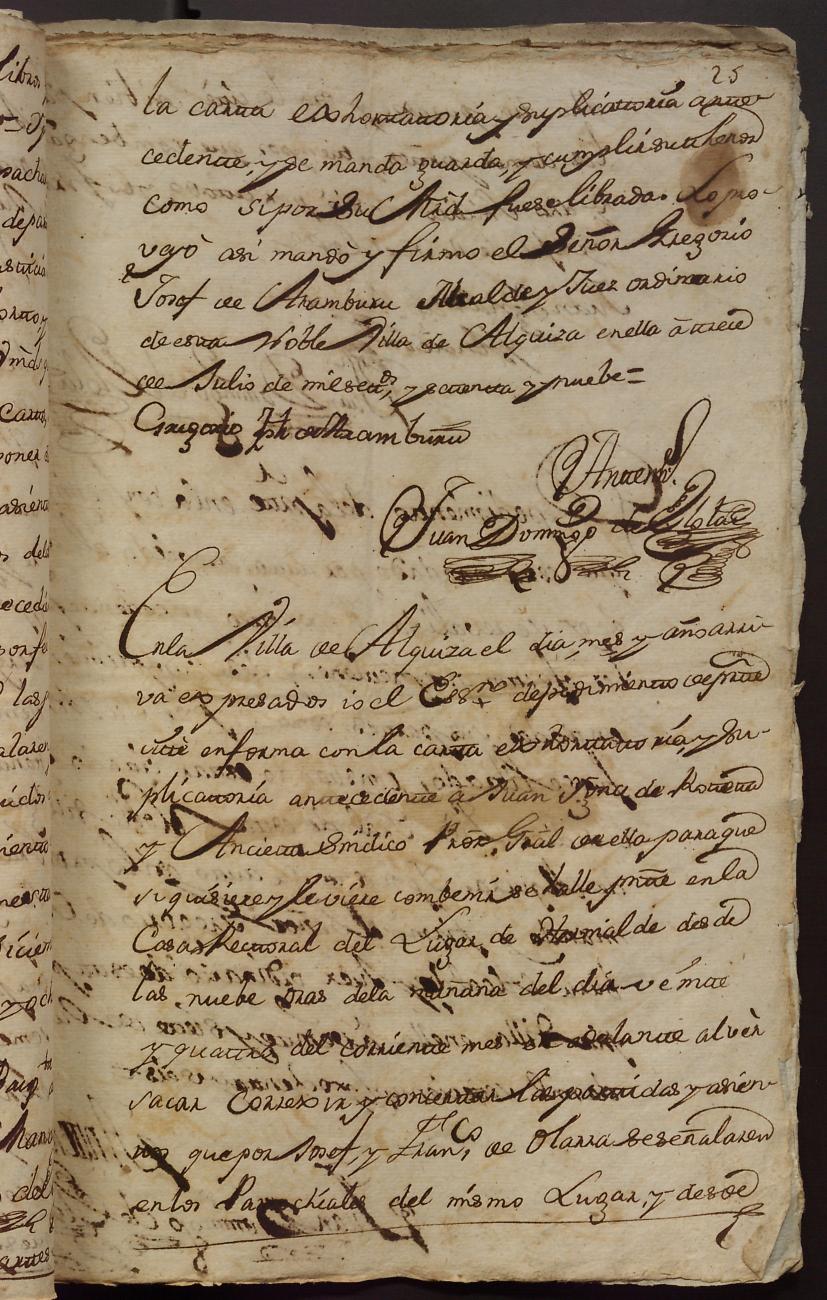 25
la carta exhortatoria y suplicatoria ante-
cedente, y se manda guarda, y cumplir su thenor
como si por Su Mrd. fuese librada. Lo pro-
veyò asi mandò y firmo el Señor Gregorio
Josef de Aramburu Alcalde y Juez ordinario
de esta Noble Villa de Alquiza en ella à trece
de Julio de mil setez.os y setenta y nuebe=
Gregorio Jph de Aramburu
Antemi
Juan Domingo de
En la Villa de Alquiza el dia, mes y año arri-
va expresados io el Ess.no de pedimiento de parte
cité en forma con la carta exhortatoria, y su-
plicatoria antecedente a Juan Ygn.o de
y Ancieta Sindico Pror. Gral de ella para que
si quisiere y le viere combenir se halle presente en la
Casa Rectoral del Lugar de Hernialde desde
las nuebe oras dela mañana del dia veinte
y quattro del corriente mes en adelante al ver
sacar Correxir y concertar las partidas y asien-
tos que por Josef, y Fran.co de Olarra se señalaren
en los Parrochiales del mismo Lugar, y desde